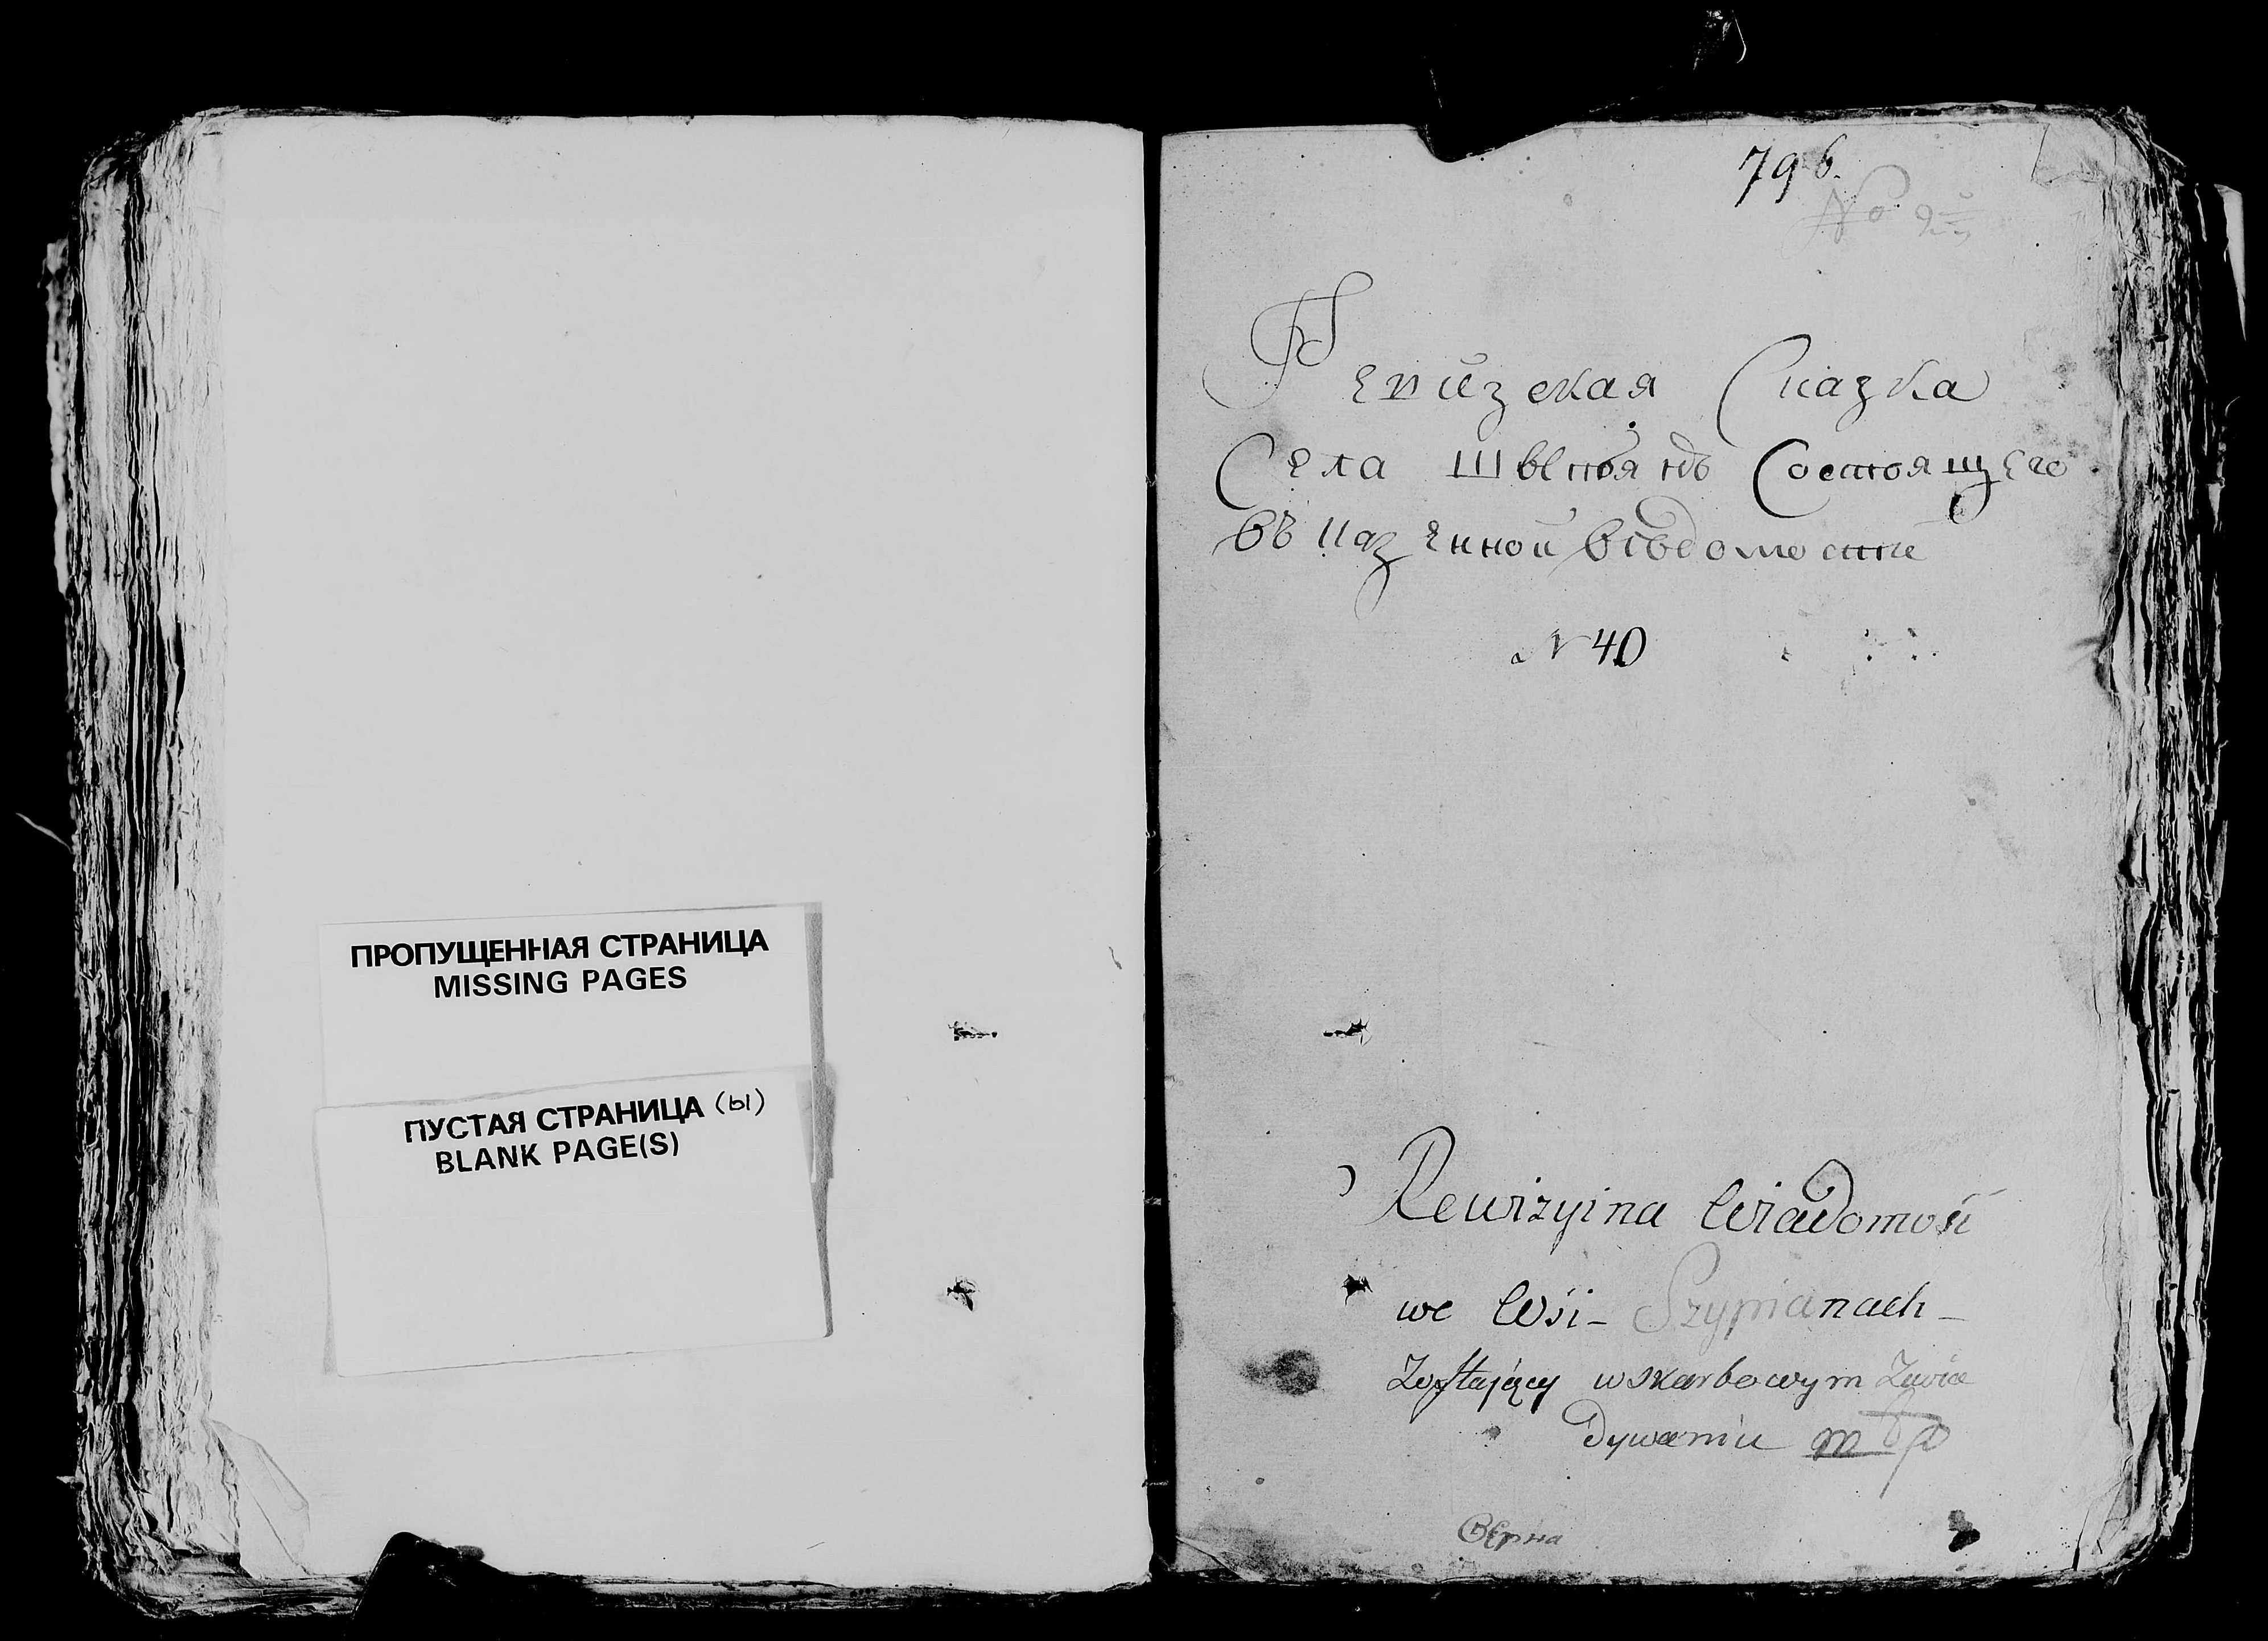 ПРОПУЩЕННАЯ СТРАНИЦА
MISSING PAGES
ПУСТАЯ СТРАНИЦА (ы)
BLANK PAGE(S)
796.
№
Ревизская Сказка
Села Состоящего
въ казенной вѣдомости
N 40
Rewizyina Wiadomość
we Wsi - Szypianach -
Zostający w skarbowym Zawia
dywaniu
Вѣрна